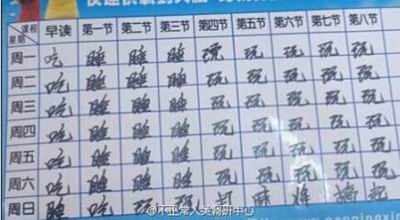 课程 早读 第一节 第二节 第三节 第四节 第五节 第六节 第七节 第八节
星期
周一 吃 睡 睡 睡 玩 玩 玩 玩 玩
周二 吃 睡 睡 睡 玩 玩 玩 玩 玩
周三 吃 睡 睡 睡 玩 玩 玩 玩 玩
周四 吃 睡 睡 睡 玩 玩 玩 玩 玩
周五 吃 睡 睡 睡 玩 玩 玩 玩 玩
周六 吃 睡 睡 睡 玩 玩 玩 玩 玩
周日 睡 吃 玩
@不正常人类调研中心